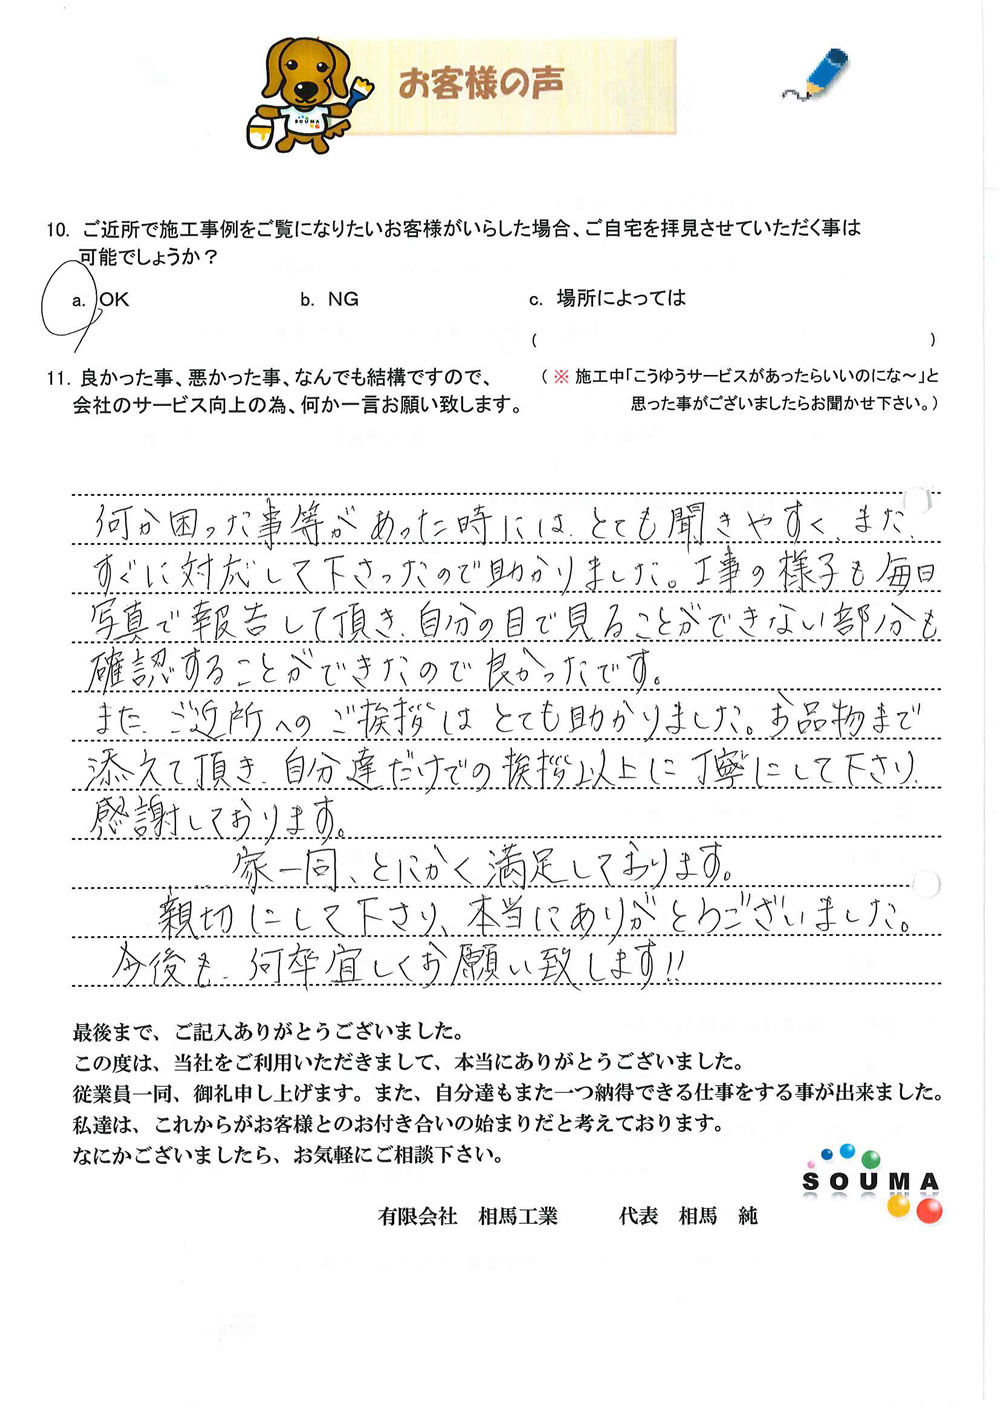 SOUMA
お客様の声
10. ご近所で施工事例をご覧になりたいお客様がいらした場合、ご自宅を拝見させていただく事は
可能でしょうか？
a. OK b. NG c. 場所によっては
( )
11. 良かった事、悪かった事、なんでも結構ですので、 (※ 施工中「こうゆうサービスがあったらいいのにな～」と
会社のサービス向上の為、何か一言お願い致します。 思った事がございましたらお聞かせ下さい。)
何か困った事等があった時には、とても聞きやすく、また、
すぐに対応して下さったので助かりました。工事の様子も毎日
写真で報告して頂き、自分の目で見ることができない部分も
確認することができたので良かったです。
また、ご近所へのご挨拶はとても助かりました。お品物まで
添えて頂き、自分達だけでの挨拶以上に丁寧にして下さり、
感謝しております。
家一同、とにかく満足しております。
親切にして下さり、本当にありがとうございました。
今後も、何卒宜しくお願い致します!!
最後まで、ご記入ありがとうございました。
この度は、当社をご利用いただきまして、本当にありがとうございました。
従業員一同、御礼申し上げます。また、自分達もまた一つ納得できる仕事をする事が出来ました。
私達は、これからがお客様とのお付き合いの始まりだと考えております。
なにかございましたら、お気軽にご相談下さい。
SOUMA
有限会社 相馬工業 代表 相馬 純